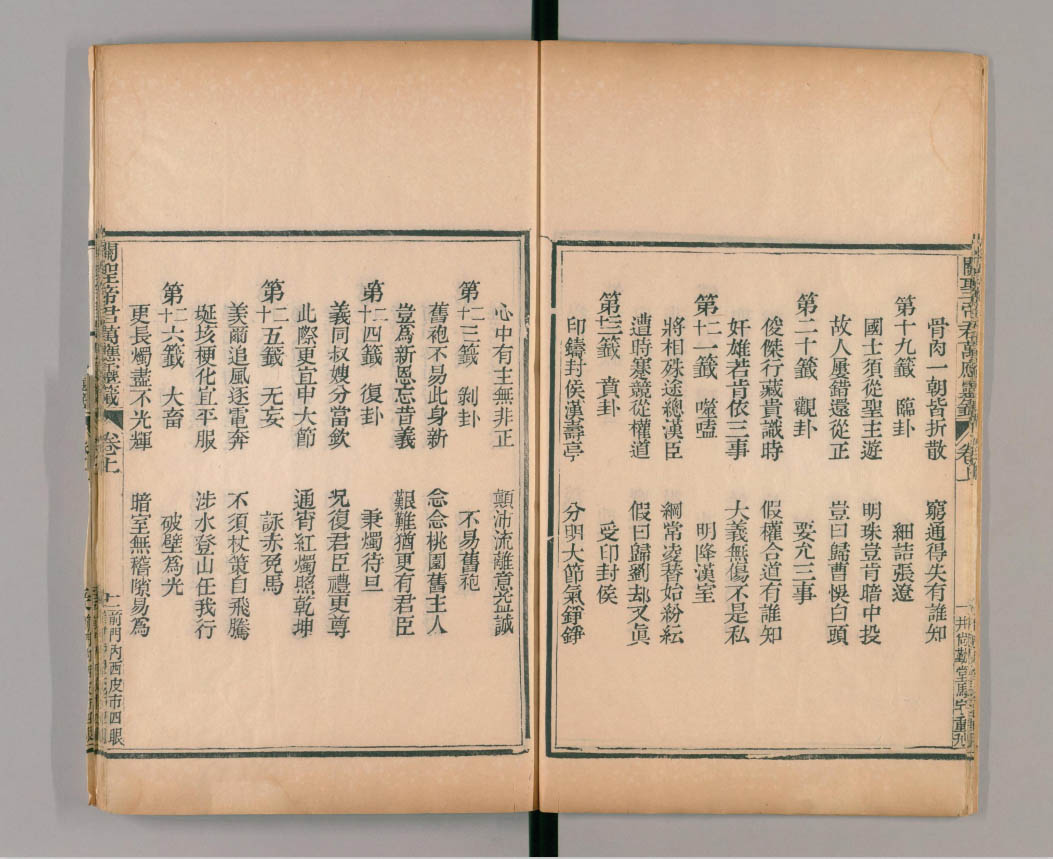 骨肉一朝皆折散　窮通得失有誰知
第十九籤　臨卦　細詰張遼
國士須從聖主遊　明珠豈肯暗中投
故人屢錯還從正　豈曰歸曹怏白頭
第二十籤　觀卦　要允三事
俊傑行藏貴識時　假權合道有誰知
奸雄若肯依三事　大義無傷不是私
第二十一籤　噬嗑　明降漢室
將相殊途總漢臣　綱常凌替始紛紜
遭時蹇競從權道　假曰歸劉却又眞
第二十二籤　賁卦　受印封侯
印鑄封侯漢壽亭　分明大節氣錚錚
關聖帝君萬應靈籤　卷上
井尚勤堂殷宅重刋
心中有主無非正　顛沛流離意益誠
第二十三籤　剝卦　不易舊袍
舊袍不易此身新　念念桃園舊主人
豈爲新恩忘昔義　艱難猶更有君臣
第二十四籤　復卦　秉燭待旦
義同叔嫂分當欽　况復君臣禮更尊
此際更宜申大節　通宵紅燭照乾坤
第二十五籤　无妄　詠赤兔馬
羨爾追風逐電奔　不須杖策自飛騰
埏垓梗化宜平服　涉水登山任我行
第二十六籤　大畜　破壁爲光
更長燭盡不光輝　暗室無稽隙易爲
關聖帝君萬應靈籤　卷上
十二　前門內西皮市四眼